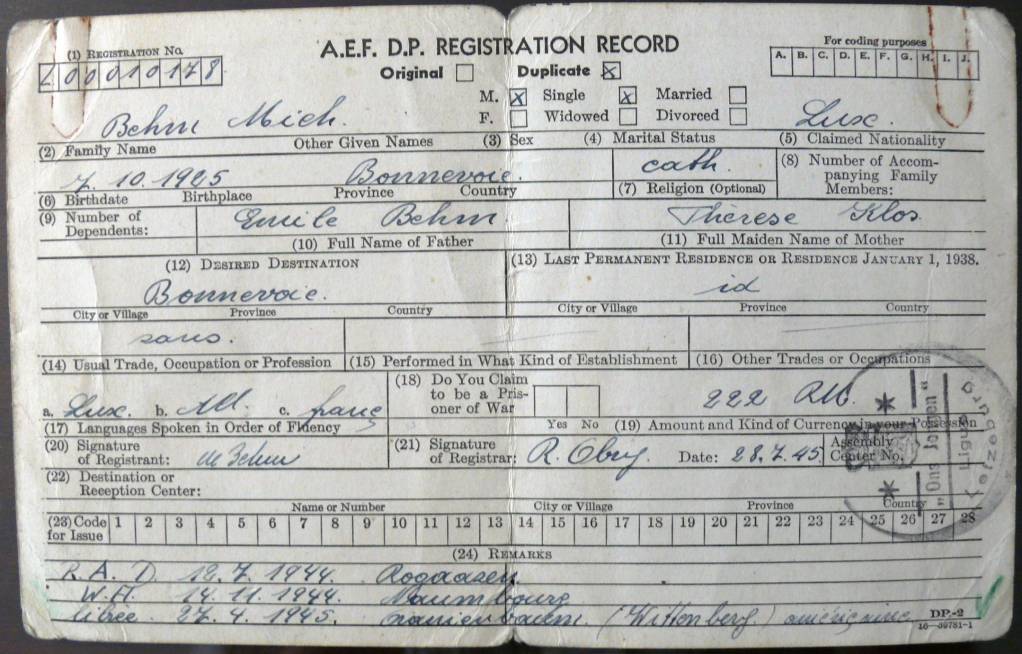 (1) REGISTRATION NO.
A.E.F. D.P. REGISTRATION RECORD
For coding purposes
00010178
Original Duplicate X
A. B. C. D. E. F. G. H. I. J.
M. X Single X Married
F. Widowed Divorced
Behm Mich. Lux.
(2) Family Name Other Given Names (3) Sex (4) Marital Status (5) Claimed Nationality
7.10.1925 Bonnevoie. cath. (8) Number of Accom-
panying Family
Members:
(6) Birthdate Birthplace Province Country (7) Religion (Optional)
(9) Number of
Dependents:
Emile Behm. Thérese Klos.
(10) Full Name of Father (11) Full Maiden Name of Mother
(12) DESIRED DESTINATION (13) LAST PERMANENT RESIDENCE OR RESIDENCE JANUARY 1, 1938.
Bonnevoie. id
City or Village Province Country City or Village Province Country
sans.
(14) Usual Trade, Occupation or Profession (15) Performed in What Kind of Establishment (16) Other Trades or Occupations
a. Lux. b. All. c. franç
(18) Do You Claim
to be a Pris-
oner of War
222 RM.
(17) Languages Spoken in Order of Fluency Yes No (19) Amount and Kind of Currency in your Possession
(20) Signature
of Registrant:
(21) Signature
of Registrar:
Date: 28.7.45
Assembly
Center No.
(22) Destination or
Reception Center:
Name or Number City or Village Province Country
(23) Code
for Issue
1 2 3 4 5 6 7 8 9 10 11 12 13 14 15 16 17 18 19 20 21 22 23 24 25 26 27 28
(24) REMARKS
R.A.D. 18.7.1944. Rogaasen
W.H. 14.11.1944. Naumbourg
libéré 27.4.1945. (Wittenberg)
DP-2
16-39781-1
"Ons Jongen"
Ligue